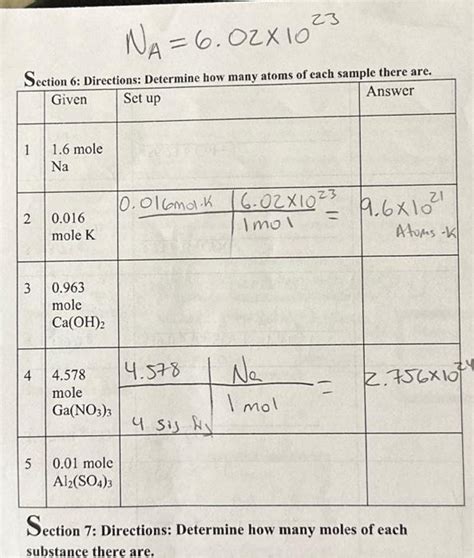 N_A = 6.02X10^23
Section 6: Directions: Determine how many atoms of each sample there are.
Given Set up Answer
1 1.6 mole
Na
2 0.016
mole K
0.016mol·K 6.02X10^23 = 9.6X10^21
1mol Atoms·K
3 0.963
mole
Ca(OH)₂
4 4.578
mole
Ga(NO₃)₃
4.578 Na = 2.756X10^24
1 mol
4 sig
5 0.01 mole
Al₂(SO₄)₃
Section 7: Directions: Determine how many moles of each
substance there are.